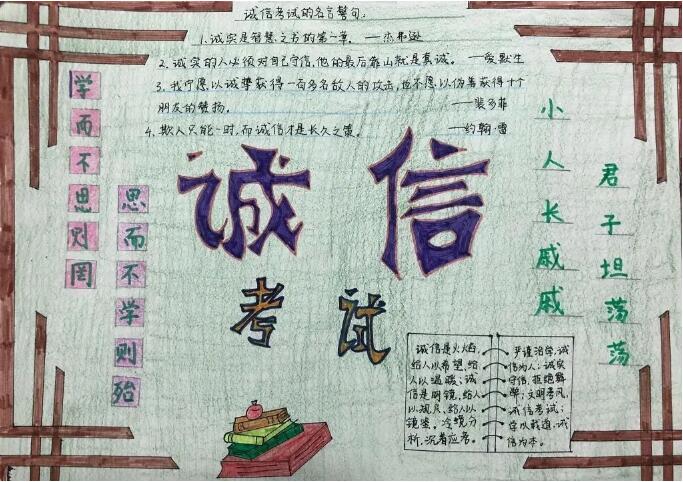 诚信考试的名言警句:
1.诚实是智慧之书的第一章。——杰弗逊
2.诚实的人必须对自己守信,他的最后靠山就是真诚。——爱默生
3.我宁愿以诚挚获得一百多名敌人的攻击,也不愿以伪善获得十个
朋友的赞扬。——裴多菲
4.欺人只能一时,而诚信才是长久之策。——约翰·雷
学而不思则罔
思而不学则殆
诚信
考试
君子坦荡荡
小人长戚戚
诚信是火焰,
给人以希望,给
人以温暖;诚
信是明镜,给人
以观照,给人以
镜鉴。冷静分
析,沉着应考。
严谨治学,诚
信为人;诚实
守信,拒绝舞
弊;文明考风,
诚信考试;
学以载道,诚
信为本。